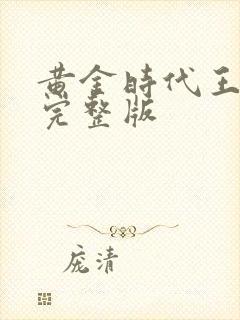 黄金時代王
完整版
庞清